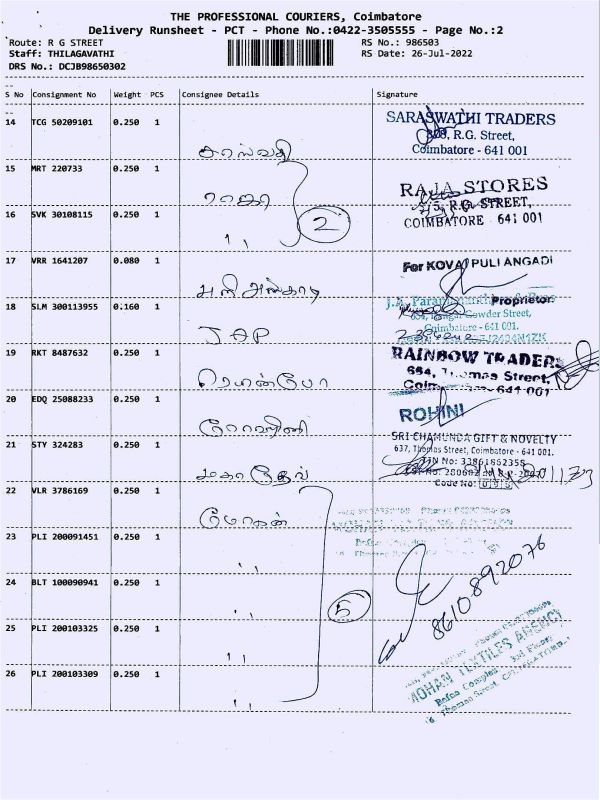 THE PROFESSIONAL COURIERS, Coimbatore
Delivery Runsheet - PCT - Phone No.:0422-3505555 - Page No.:2
Route: R G STREET
RS No.: 986503
Staff: THILAGAVATHI
RS Date: 26-Jul-2022
DRS No.: DCJB98650302
S No Consignment No Weight PCS Consignee Details Signature
14 TCG 50209101 0.250 1
SARASWATHI TRADERS
R.G. Street,
Coimbatore - 641 001
15 MRT 220733 0.250 1
ராஜா
RAJA STORES
R.G. STREET,
COIMBATORE - 641 001
16 SVK 30108115 0.250 1
,,
2
17 VRR 1641207 0.080 1
புளி அங்காடி
For KOVAI PULI ANGADI
Proprietor
18 SLM 300113955 0.160 1
JAP
Gowder Street,
Coimbatore - 641 001.
19 RKT 8487632 0.250 1
ரெயின்போ
RAINBOW TRADERS
664, Thomas Street,
641 001
20 EDQ 25088233 0.250 1
ரோஹிணி
ROHINI
21 STY 324283 0.250 1
மகாதேவ்
SRI CHAMUNDA GIFT & NOVELTY
637, Thomas Street, Coimbatore - 641 001.
No: 33861862358
Code No: 096
22 VLR 3786169 0.250 1
மோகன்
23 PLI 200091451 0.250 1
,,
24 BLT 100090941 0.250 1
,,
5
8610892076
25 PLI 200103325 0.250 1
,,
MOHAN TEXTILES AGENCY
Complex
Thomas Street,
26 PLI 200103309 0.250 1
,,